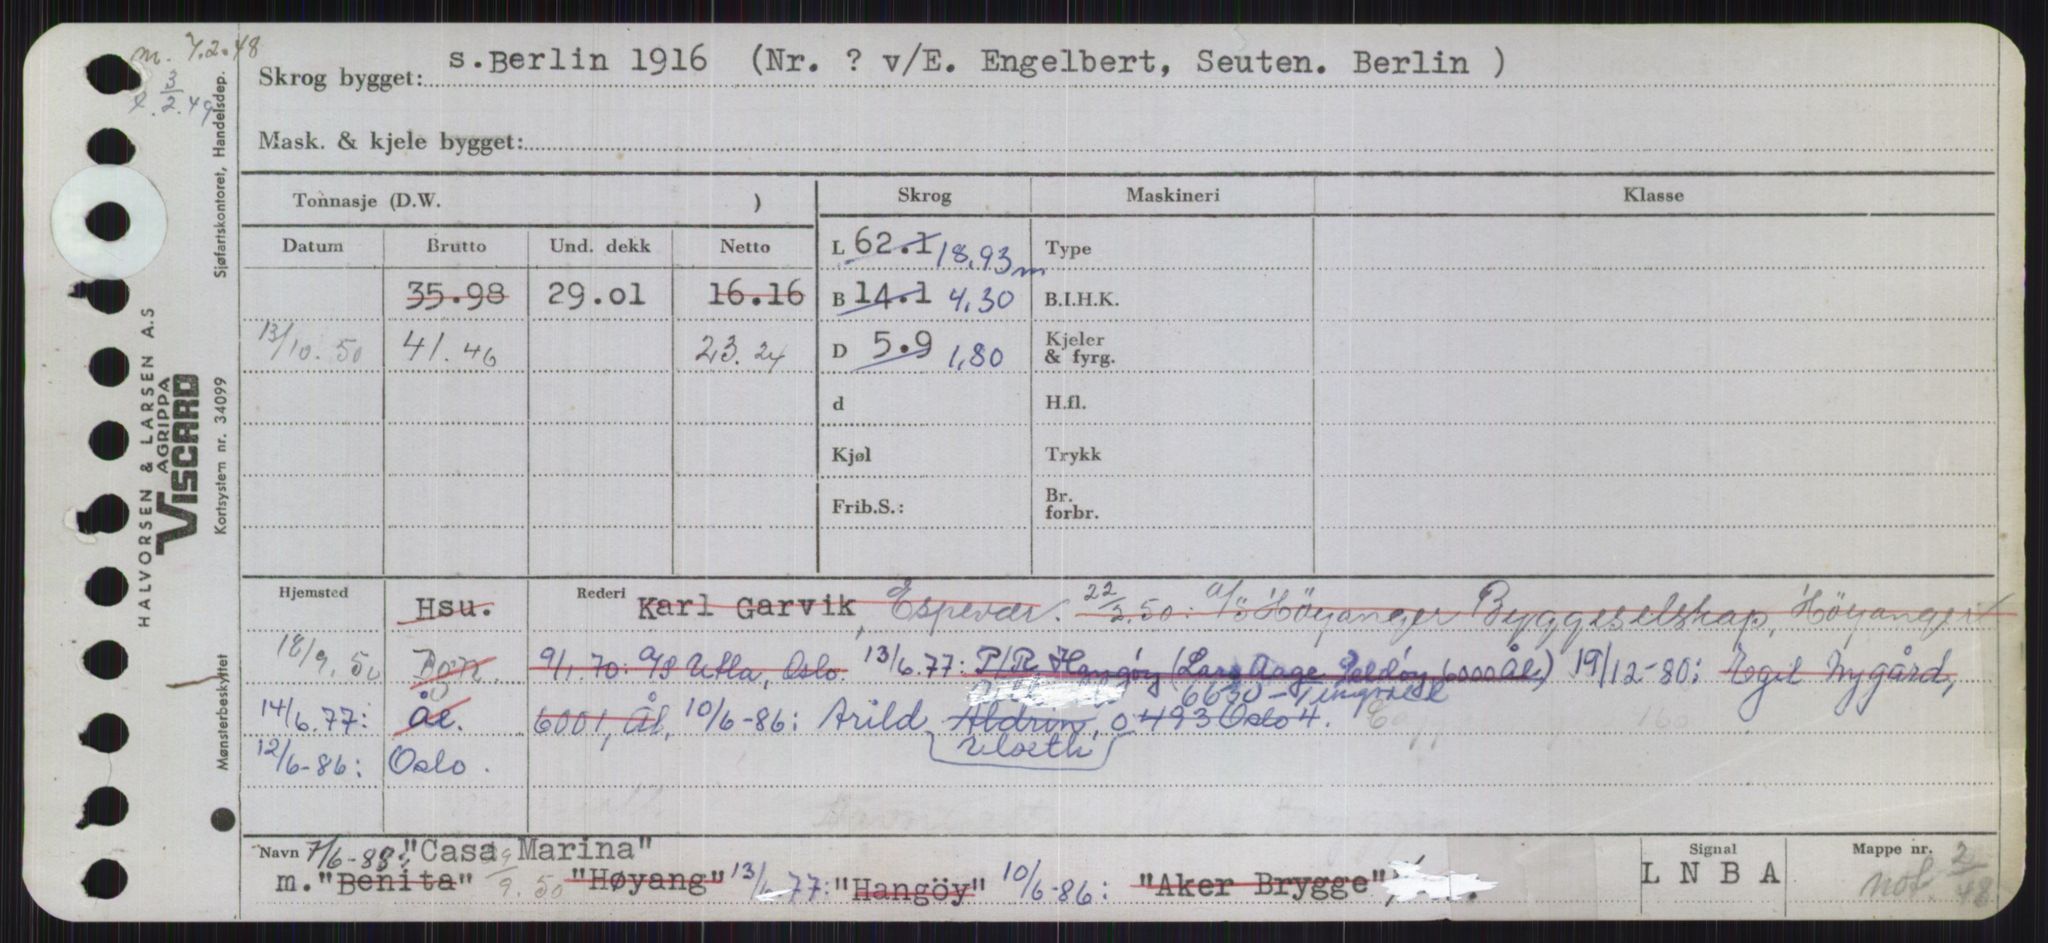 m. 7.2.48
3/2.49
Skrog bygget: s.Berlin 1916 (Nr. ? v/E. Engelbert, Seuten. Berlin )
Mask. & kjele bygget:
Tonnasje (D.W. )
Skrog Maskineri Klasse
Datum Brutto Und. dekk Netto
L 62.1 18,93 m Type
35.98 29.01 16.16 B 14.1 4,30 B.I.H.K.
13/10.50 41.46 23.24 D 5.9 1,80 Kjeler & fyrg.
d H.fl.
Kjøl Trykk
Frib.S.: Br. forbr.
Hjemsted Hsu. Rederi Karl Garvik, Espevær. 22/3.50: a/s Høyanger Byggeselskap, Høyanger
18/9.50 9/1.70: a/s Utla, Oslo. 13/6.77: P/R Hangöy (Lars Aage 6000 Ål) 19/12-80: Egil Nygård,
6630 - Tingvoll
14/6.77: Ål. 6001, Ål, 10/6-86: Arild Aldrin, 0493 Oslo 4.
12/6-86: Oslo.
Navn 7/6-88: "Casa Marina"
m. "Benita" 9.50 "Høyang" 13/6.77: "Hangöy" 10/6-86: "Aker Brygge",
Signal L N B A
Mappe nr. not. 2/48
Sjøfartskontoret, Handelsdep.
HALVORSEN & LARSEN A.S
AGRIPPA
VISCARD
Kortsystem nr. 34099
Mønsterbeskyttet